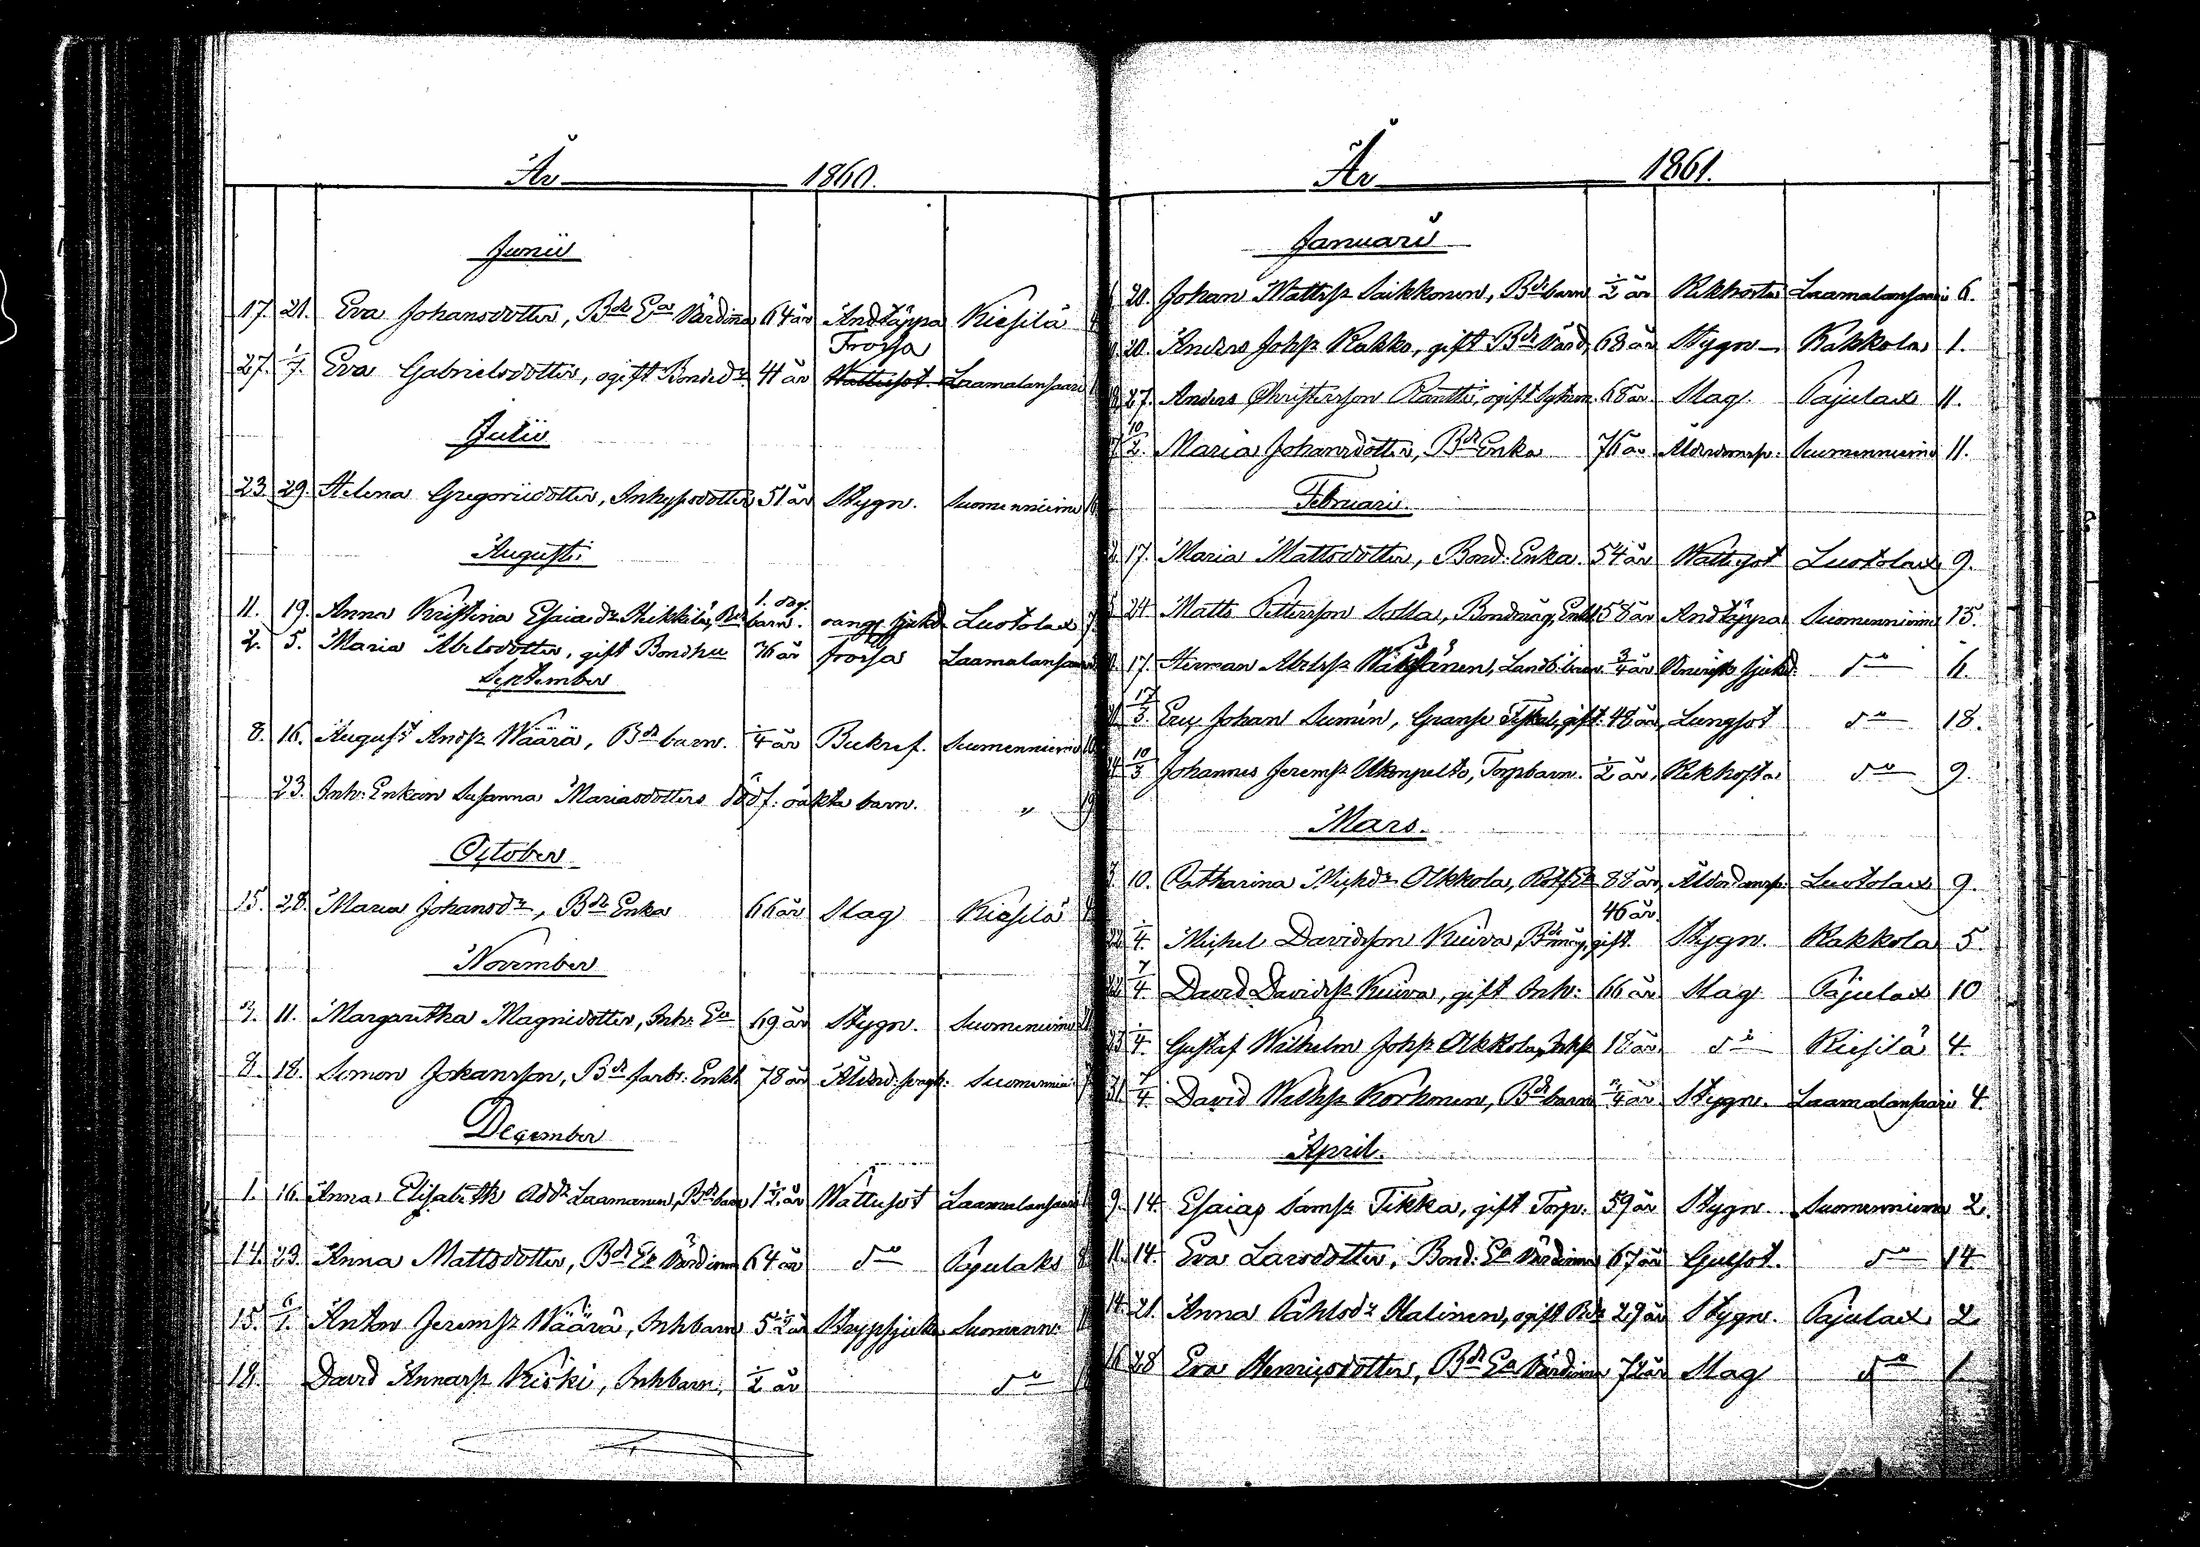 År 1860.
Junii
17. 21. Eva Johansdotter, Bde Ea Värdinna 64 år Andtäppa Kiesilä
Frossa
27. 1/7. Eva Gabrielsdotter, ogift Bonded:r 41 år Wattusot. Laamalansaari
Julii
23. 29. Helena Gregoriidotter, Inhysesdotter 51 år Stygn. Suomenniemi
Augusti
1. dag.
11. 19. Anna Kristina Esaiad:r Bde barn. Luotolax
2. 5. Maria Abelsdotter, gift Bondhu 76 år frossa Laamalansaari
September
8. 16. August Andsr Wäärä, Bde barn. 1/4 år Bukref. Suomenniemi
23. Inh: Enkan Susanna Mariasdotters dödf: oäkta barn. "
October
15. 28. Maria Johansd:r, Bde Enka 66 år Slag Kiesilä
November
2. 11. Margaretha Magnidotter, Inh: Ea 69 år Stygn. Suomenniemi
8. 18. Simon Johansson, Bde farbr: Enkl 78 år Suomenniemi
December
1. 16. Anna Elisabeth Add:r Laamanen, Bde barn 1 1/2 år Wattusot Laamalansaari
14. 23. Anna Mattsdotter, Bde Ea Värdinna 64 år do Pajulaks
15. 6/1. Anton Jeremsr Wäärä, Inhbarn 5 1/2 år Suomenn:
18. David Annarsr Kiiski, Inhbarn, 1/2 år do
År 1861.
Januarii
20. Johan Mattssr Saikkonen, Bde barn 1/2 år Kikhosta Laamalansaari 6.
20. Anders Johsr Kakko, gift Bde Värd, 68 år Stygn Kakkola 1.
27. Anders Christersson Rantti, ogift 68 år. Slag. Pajulax 11.
10/2. Maria Johansdotter, Bde Enka 76 år Ålderdomsv. Suomenniemi 11.
Februarii.
17. Maria Mattsdotter, Bond: Enka. 54 år Wattusot Luotolax 9.
24 Matts Pettersson Solla, Bondmåg, Enkl 58 år Andtäppa Suomenniemi 15.
17. Herman Abelsr Landb: barn. 3/4 år do 6.
17/3. Eric Johan Sumin, gift. 48 år, Lungsot do 18.
10/3 Johannes Jeremsr Ukonpelto, Torpbarn. 1/2 år, Kikhosta do 9.
Mars.
10. Catharina Michd:r Olkkola, 88 år, Luotolax 9.
46 år.
1/4. Michel Davidsson Kuiva, Bde måg, gift. Stygn. Kakkola 5.
7/4. David Davidsr Kuiva, gift Inh: 66 år Slag Pajulax 10
1/4. Gustaf Wilhelm Johsr Olkkola, 18 år. do Kiesilä 4.
7/4. David Wilhsr Korhonen, Bde barn 3/4 år Stygn. Laamalansaari 4.
April.
9. 14. Esaias Samsr Tikka, gift Torp. 59 år Stygn. Suomenniemi 2.
11. 14. Eva Larsdotter, Bond: Ea Värdinna 67 år Gulsot. do 14
14. 21. Anna Påhlsd:r Halinen, ogift Bde 29 år Stygn. Pajulax 2.
16 28 Eva Henricsdotter, Bde Ea Värdinna 72 år Slag do 1.